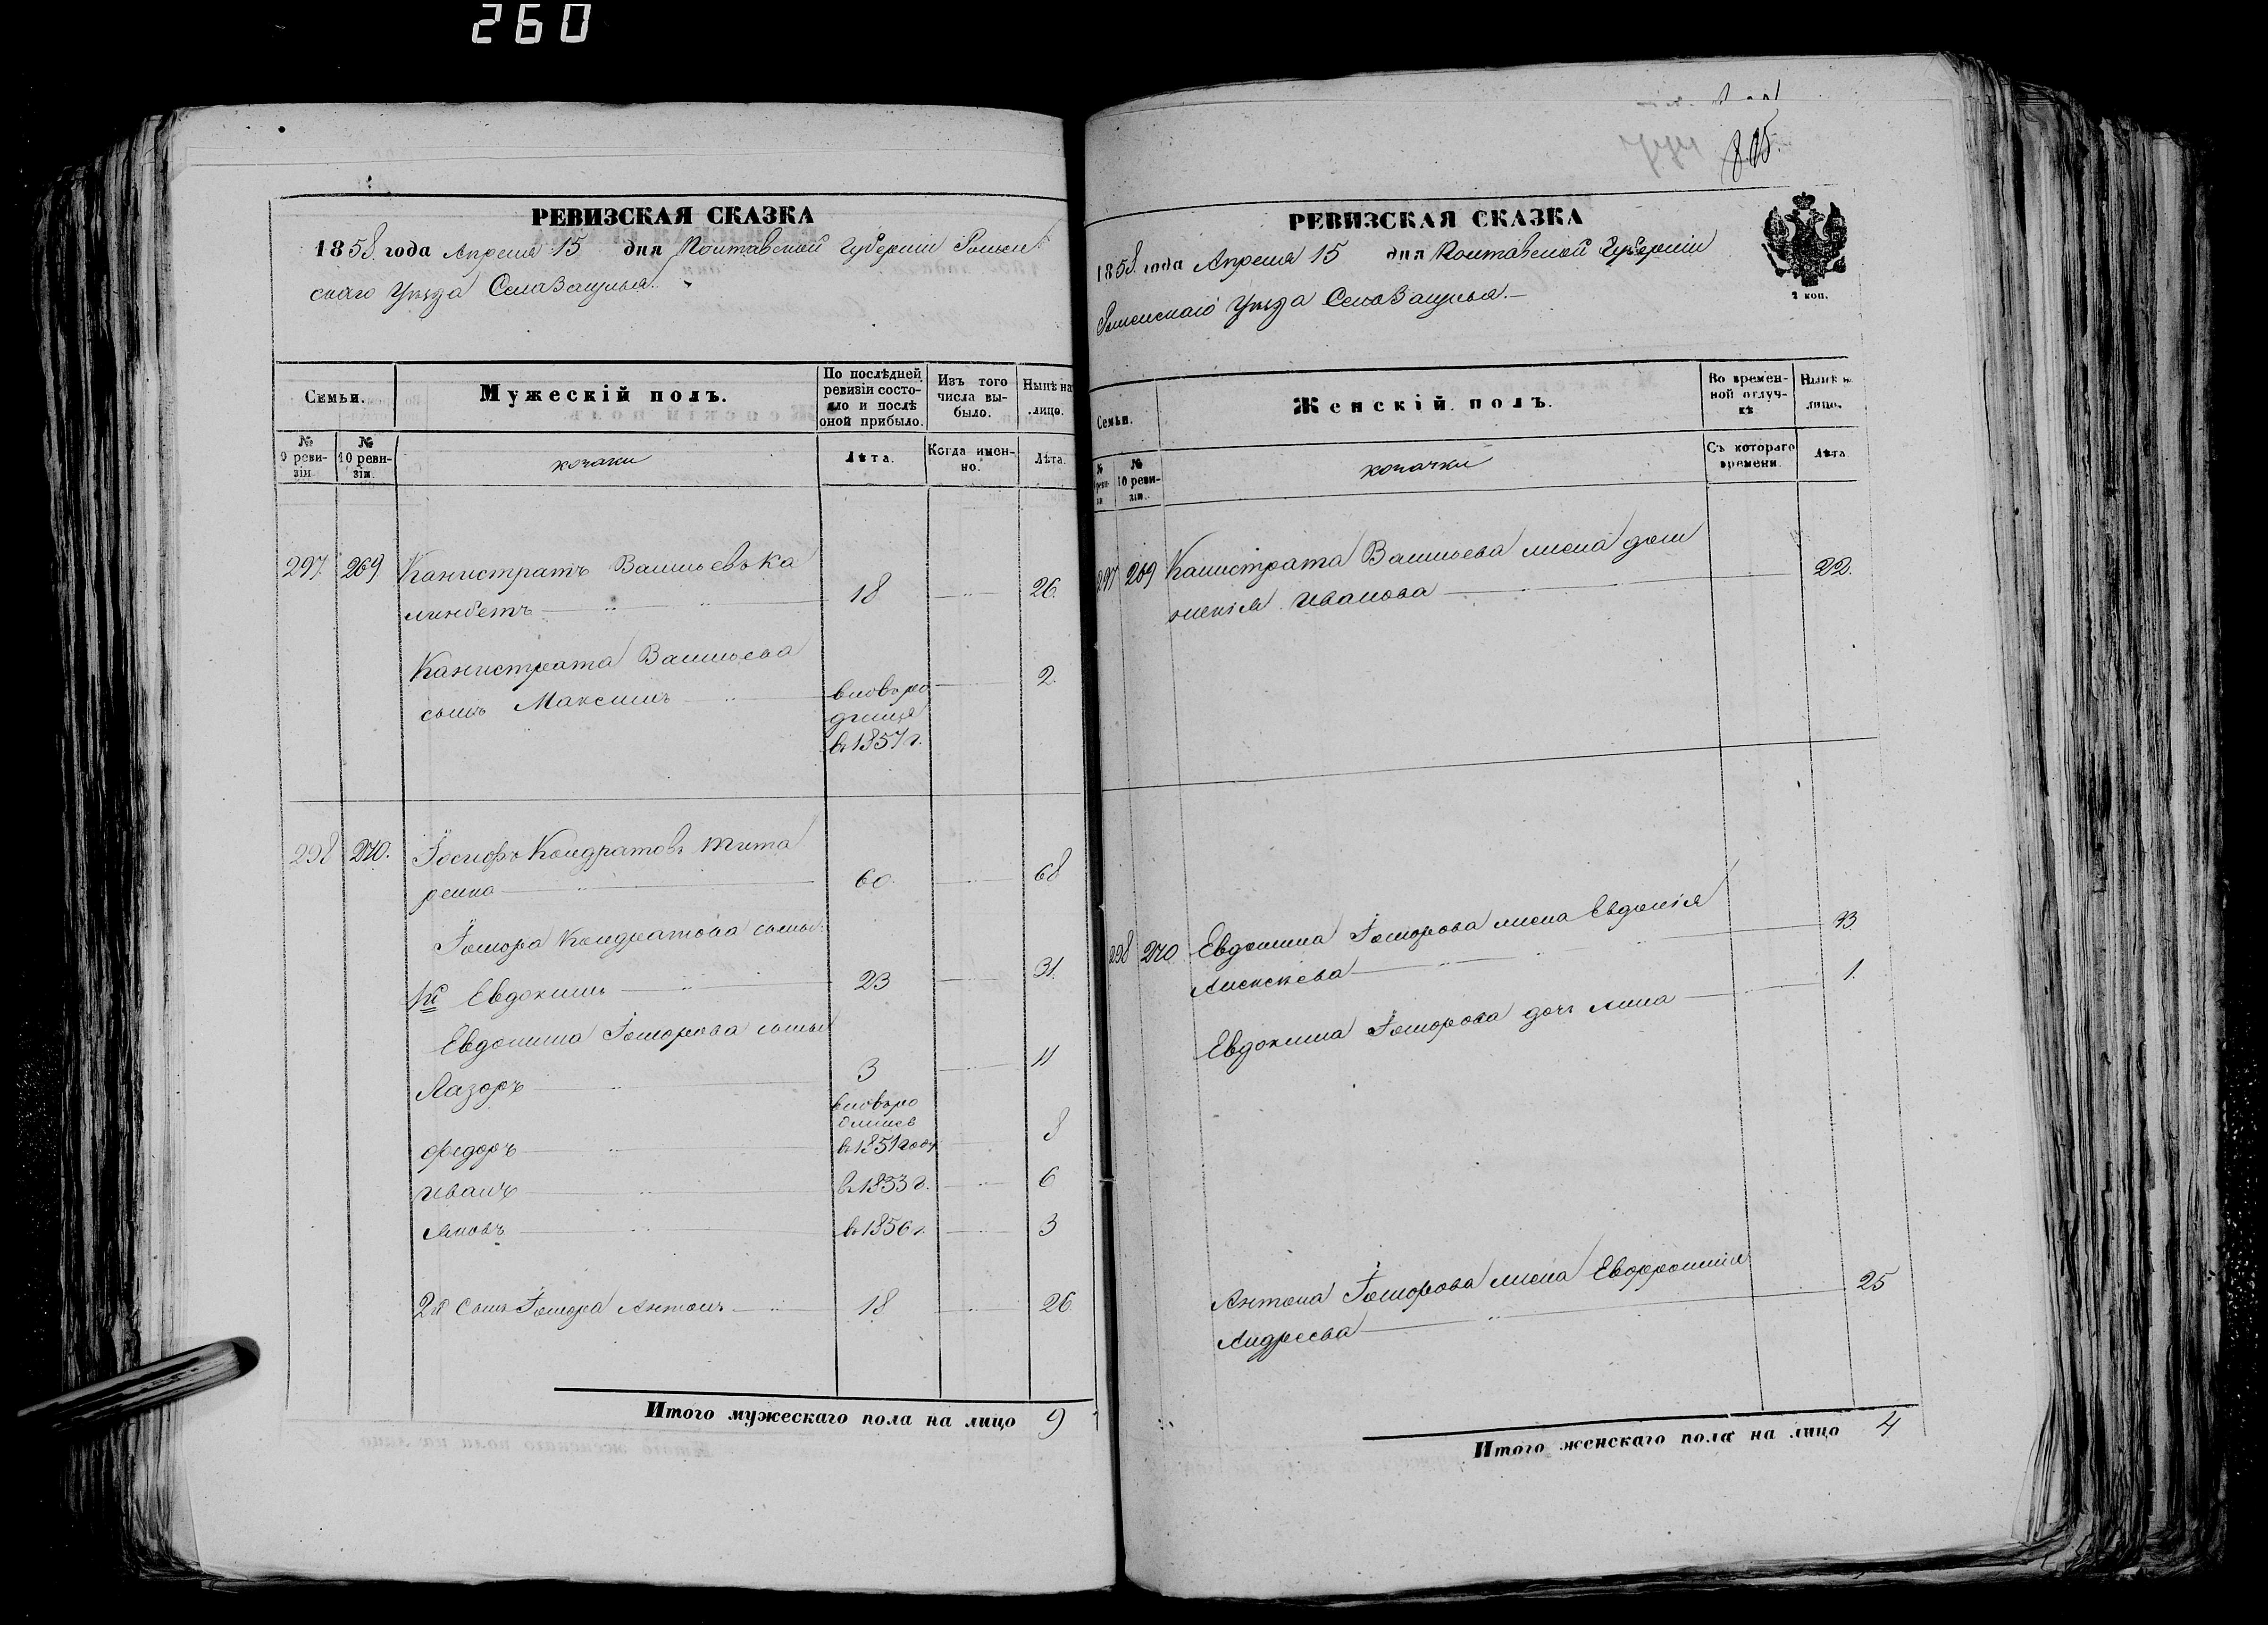 260
РЕВИЗСКАЯ СКАЗКА
1858 года Апреля 15 дня Полтавской Губерніи Ромен
скаго Уѣзда Села Защылья
Семьи.
Мужескій полъ.
По послѣдней ревизіи состояло и послѣ оной прибыло.
Изъ того числа выбыло.
Нынѣ на лицо.
№ 9 ревизіи
№ 10 ревизіи.
козаки
Лѣта.
Когда именно.
Лѣта.
297. 269 Каlистратъ Васильевъ Ка
линбетъ 18 26.
Калистрата Васильева
сынъ Максимъ вновьро 2.
дился
въ 1857 г.
298 270. Іосифъ Кондратовъ Тита
ренко 60. 68
Кондратова сынъ
1й Евдокимъ 23 31.
Евдокима сынъ
Лазоръ 3 11
вновьро
дился
Федоръ въ 1851 году 8
Иванъ въ 1853 г. 6
Яковъ въ 1856 г. 3
2й Сынъ Антонъ 18 26
Итого мужескаго пола на лицо 9
805.
РЕВИЗСКАЯ СКАЗКА
1858. года Апреля 15 дня Полтавской Губерніи
Роменскаго Уѣзда Села Защылья.
2 коп.
Семьи.
Женскій полъ.
Во временной отлучкѣ
Нынѣ на лицо.
№ 9 ревизіи
№ 10 ревизіи.
козачки
Съ котораго времени.
Лѣта
297 269 Калистрата Васильева жена Дом
Иванова 22.
298 270 Евдокима жена Евдокія
Алексѣева 33
Евдокима дочь Анна 1.
Антона жена Евфросинія
Андреева 25
Итого женскаго пола на лицо 4